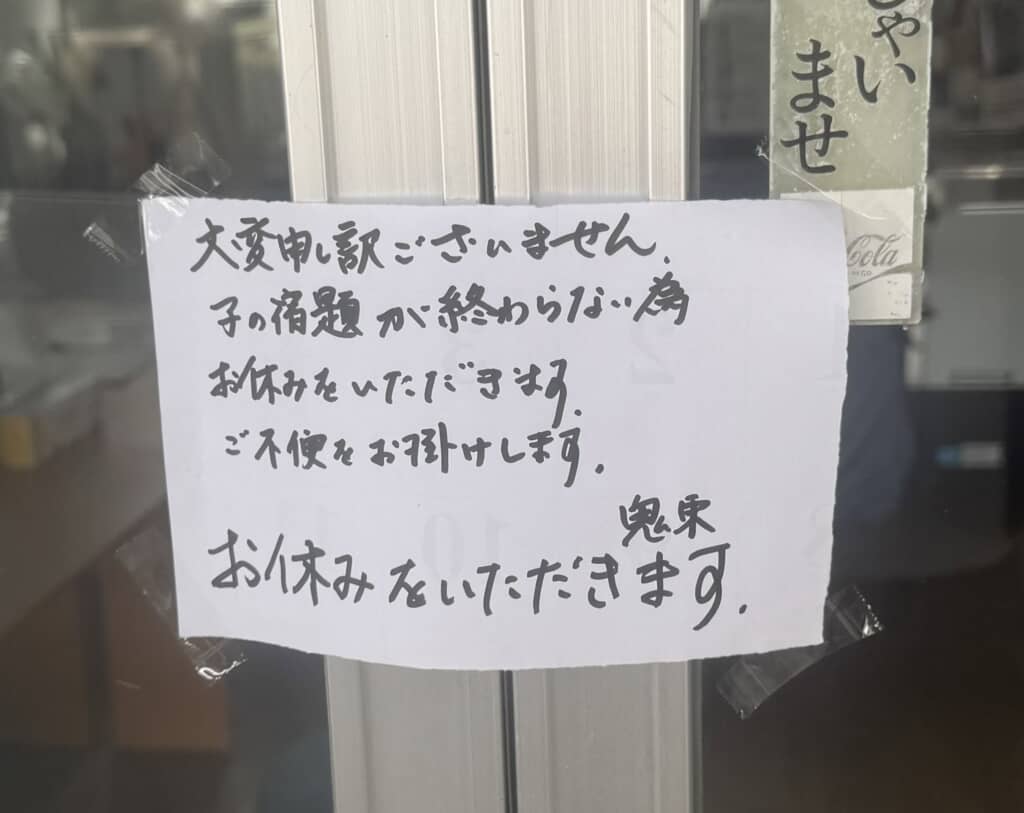 しゃい
ませ
Cola
大変申し訳ございません.
子の宿題が終わらない為
お休みをいただきます.
ご不便をお掛けします.
鬼東
お休みをいただきます.